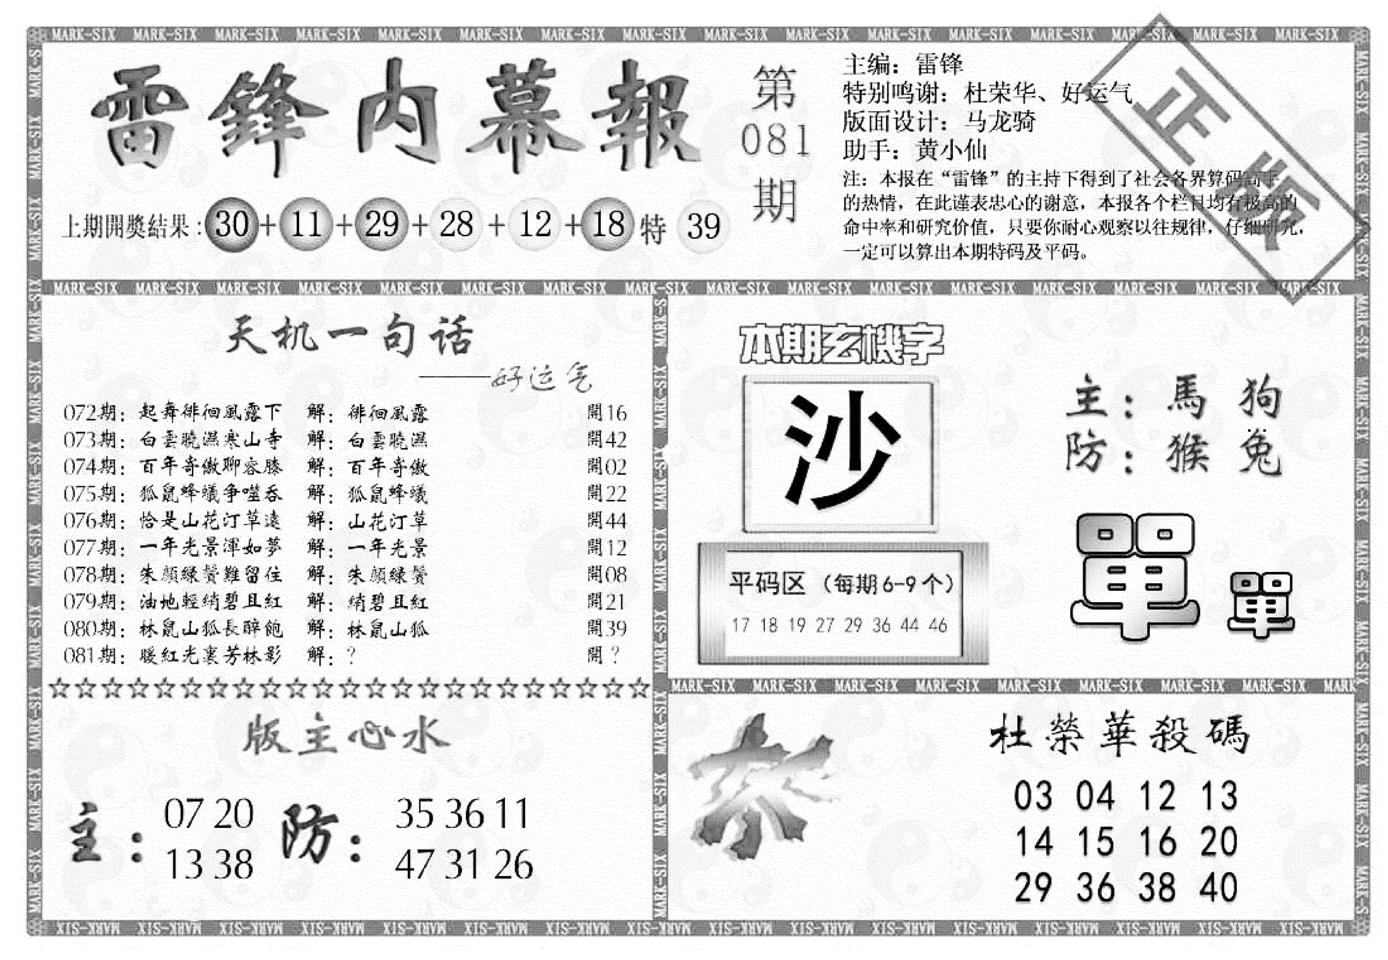 雷鋒内幕報
上期開獎結果：30+11+29+28+12+18特39
第
081
期
主编：雷锋
特别鸣谢：杜荣华、好运气
版面设计：马龙骑
助手：黄小仙
注：本报在“雷锋”的主持下得到了社会各界算码高手
的热情，在此谨表忠心的谢意，本报各个栏目均有极高的
命中率和研究价值，只要你耐心观察以往规律，仔细研究，
一定可以算出本期特码及平码。
正版
天机一句话
——好运气
072期：起舞徘徊風露下 解：徘徊風露 開16
073期：白雲曉濕寒山寺 解：白雲曉濕 開42
074期：百年寄傲聊容膝 解：百年寄傲 開02
075期：狐鼠蜂蟻争噬吞 解：狐鼠蜂蟻 開22
076期：恰是山花汀草遠 解：山花汀草 開44
077期：一年光景渾如夢 解：一年光景 開12
078期：朱顔緑鬢難留住 解：朱顔緑鬢 開08
079期：油地輕綃碧且紅 解：綃碧且紅 開21
080期：林鼠山狐長醉飽 解：林鼠山狐 開39
081期：暖紅光裏芳林影 解：？ 開？
本期玄機字
沙
平码区（每期6-9个）
17 18 19 27 29 36 44 46
主：馬 狗
防：猴 兔
單單
版主心水
主：07 20
13 38
防：35 36 11
47 31 26
杀
杜榮華殺碼
03 04 12 13
14 15 16 20
29 36 38 40
MARK-SIX